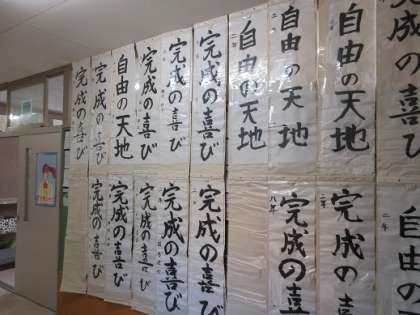 二年
自由の天地
二年
自由の天地
二年
自由の天地
完成の喜び
完成の喜び
完成の喜び
自由の天地
完成の喜び
完成の喜び
二年
二年
完成の喜
八年
完成の喜
完成の喜び
完成の喜び
完成の喜び
完成の喜び
完成の喜び